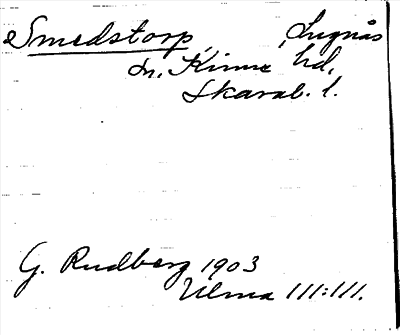 Smedstorp, Lugnås
n. Kinne hd,
Skarab. l.
G. Rudberg 1903
Ulma 111:111.